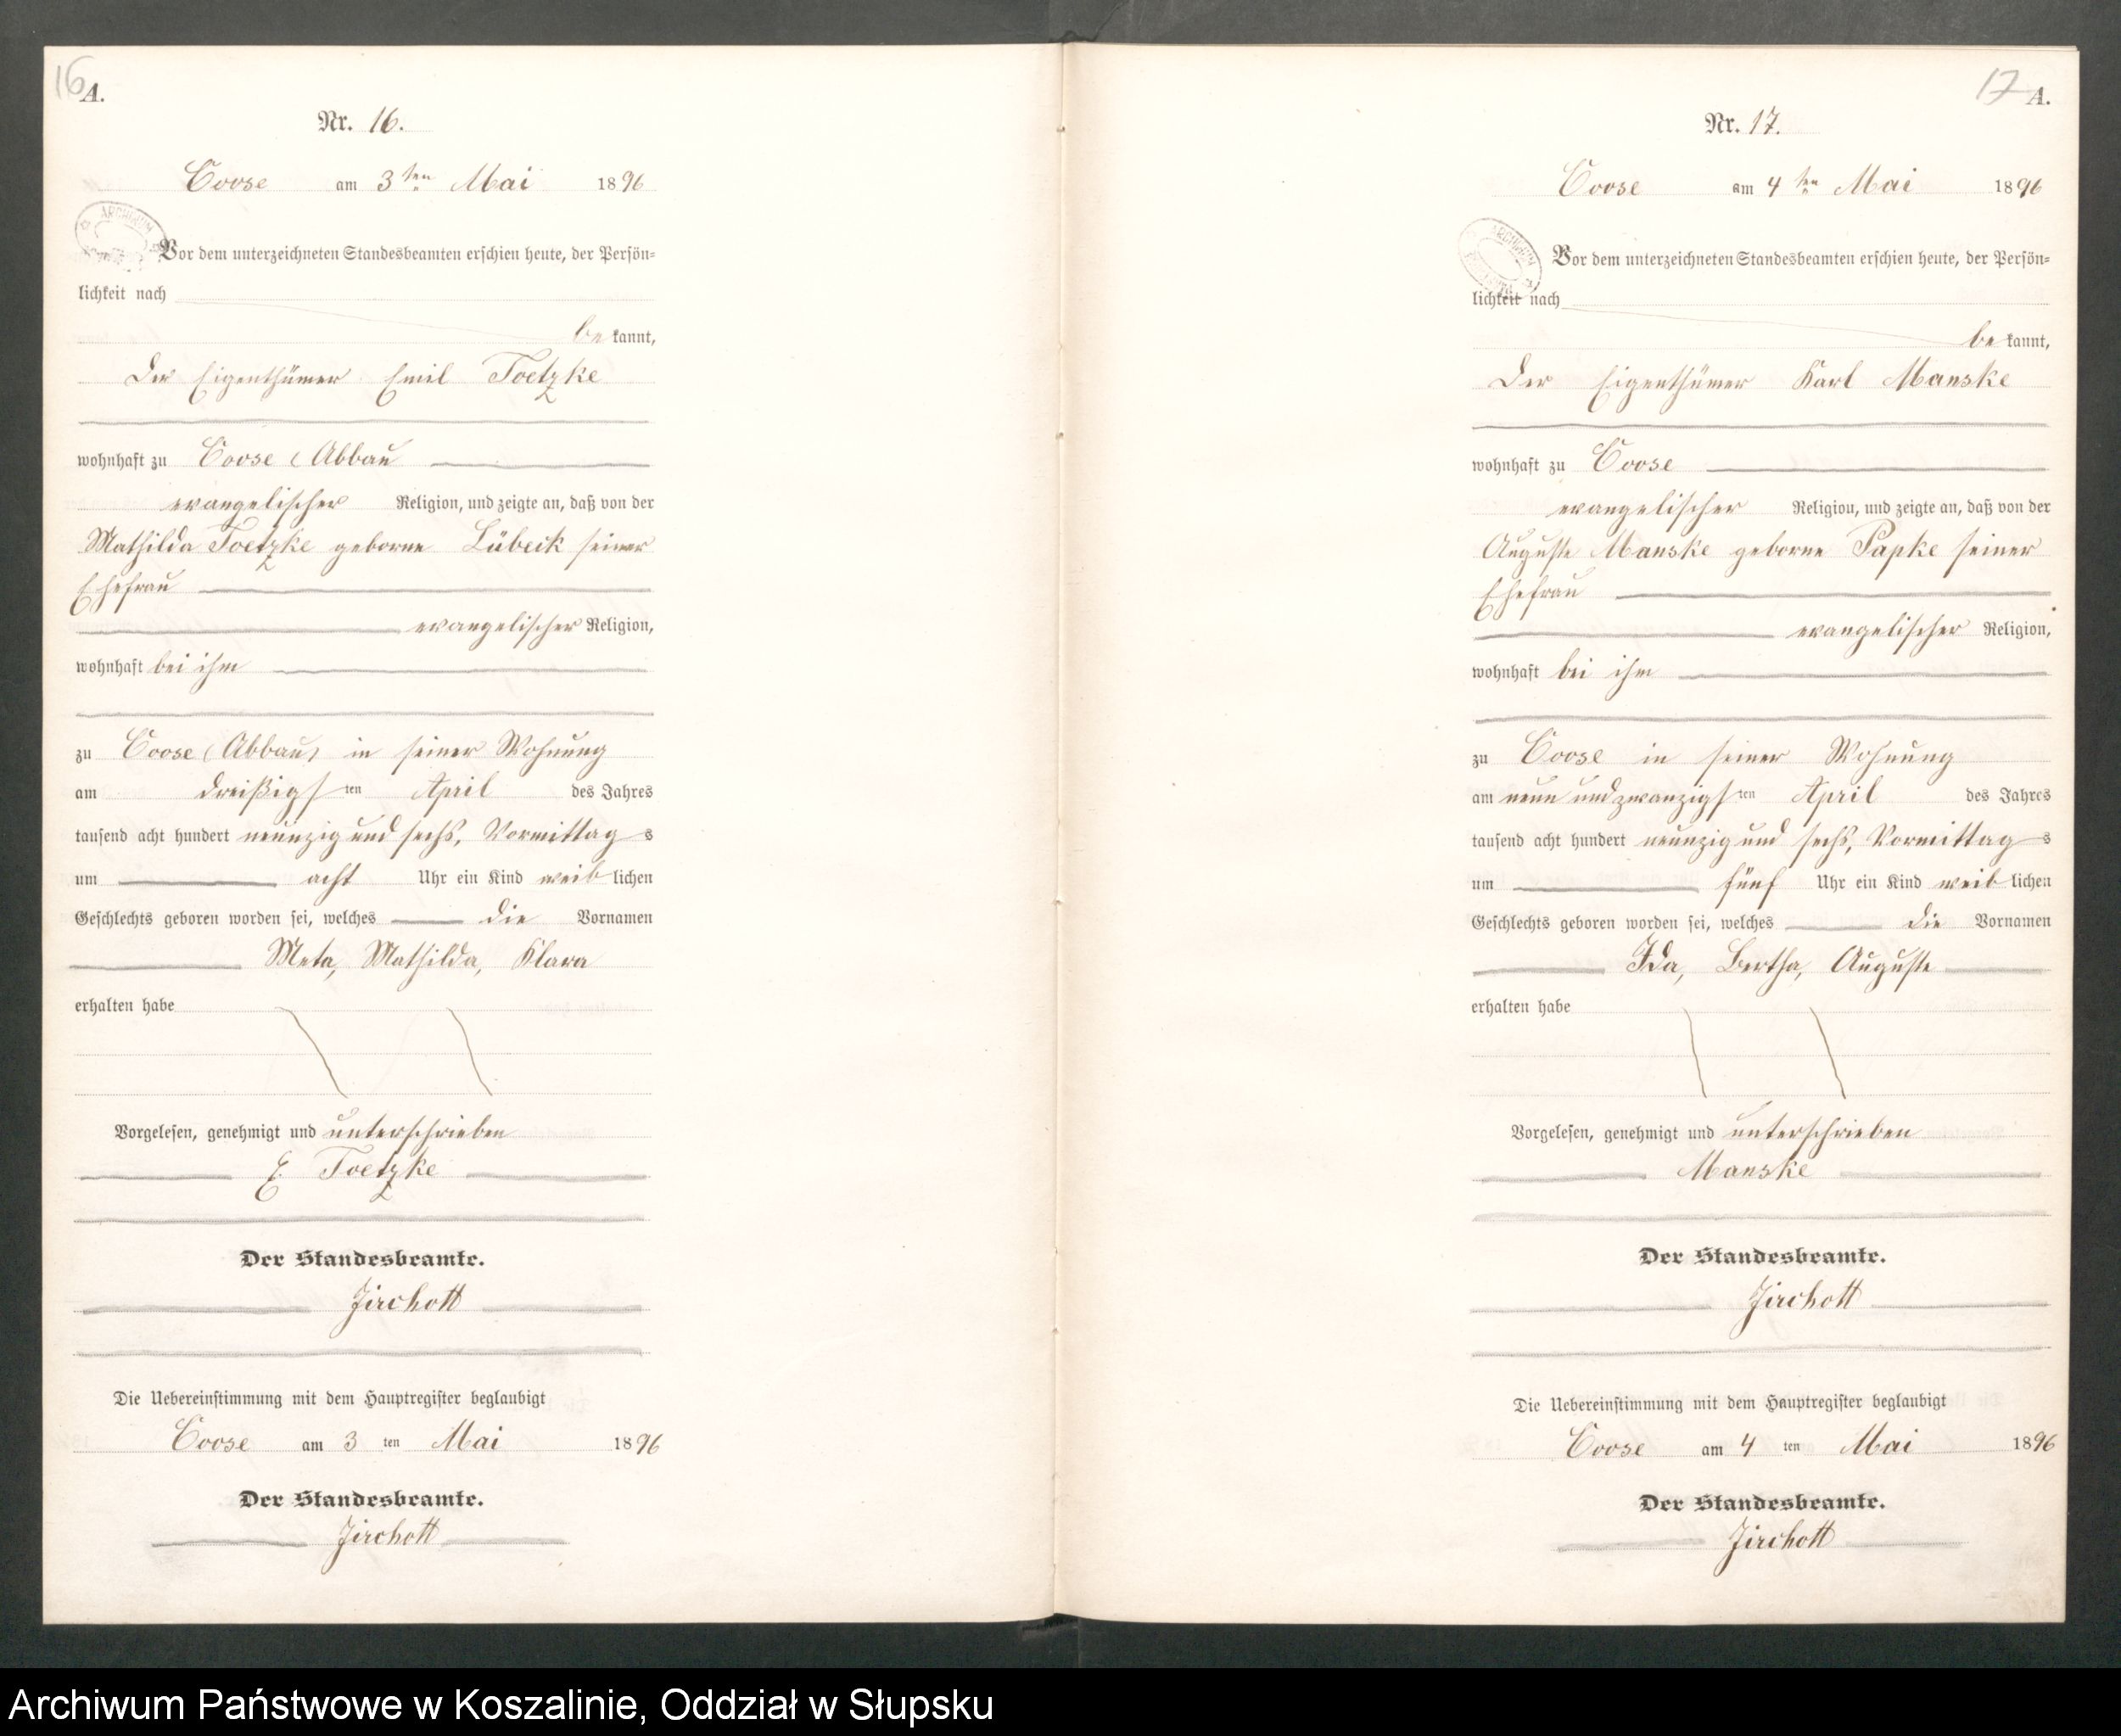 16 A.
Nr. 16.
Coose am 3ten Mai 1896
Vor dem unterzeichneten Standesbeamten erschien heute, der Persön=
lichkeit nach
be kannt,
Der Eigenthümer Emil Toetzke
wohnhaft zu Coose (Abbau
evangelischer Religion, und zeigte an, daß von der
Mathilda Toetzke geborne Lübeck seiner
Ehefrau
evangelischer Religion,
wohnhaft bei ihm
zu Coose (Abbau) in seiner Wohnung
am dreißigsten April des Jahres
tausend acht hundert neunzig und sechs, Vormittags
um acht Uhr ein Kind weiblichen
Geschlechts geboren worden sei, welches die Vornamen
Meta, Mathilda, Klara
erhalten habe
Vorgelesen, genehmigt und unterschrieben
E. Toetzke
Der Standesbeamte.
Zirchott
Die Uebereinstimmung mit dem Hauptregister beglaubigt
Coose am 3 ten Mai 1896
Der Standesbeamte.
Zirchott
17 A.
Nr. 17.
Coose am 4ten Mai 1896
ARCHIWUM
Vor dem unterzeichneten Standesbeamten erschien heute, der Persön=
lichkeit nach
be kannt,
Der Eigenthümer Karl Manske
wohnhaft zu Coose
evangelischer Religion, und zeigte an, daß von der
Auguste Manske geborne Papke seiner
Ehefrau
evangelischer Religion,
wohnhaft bei ihm
zu Coose in seiner Wohnung
am neun und zwanzigsten April des Jahres
tausend acht hundert neunzig und sechs, Vormittags
um fünf Uhr ein Kind weiblichen
Geschlechts geboren worden sei, welches die Vornamen
Ida, Bertha, Auguste
erhalten habe
Vorgelesen, genehmigt und unterschrieben
Manske
Der Standesbeamte.
Zirchott
Die Uebereinstimmung mit dem Hauptregister beglaubigt
Coose am 4 ten Mai 1896
Der Standesbeamte.
Zirchott
Archiwum Państwowe w Koszalinie, Oddział w Słupsku